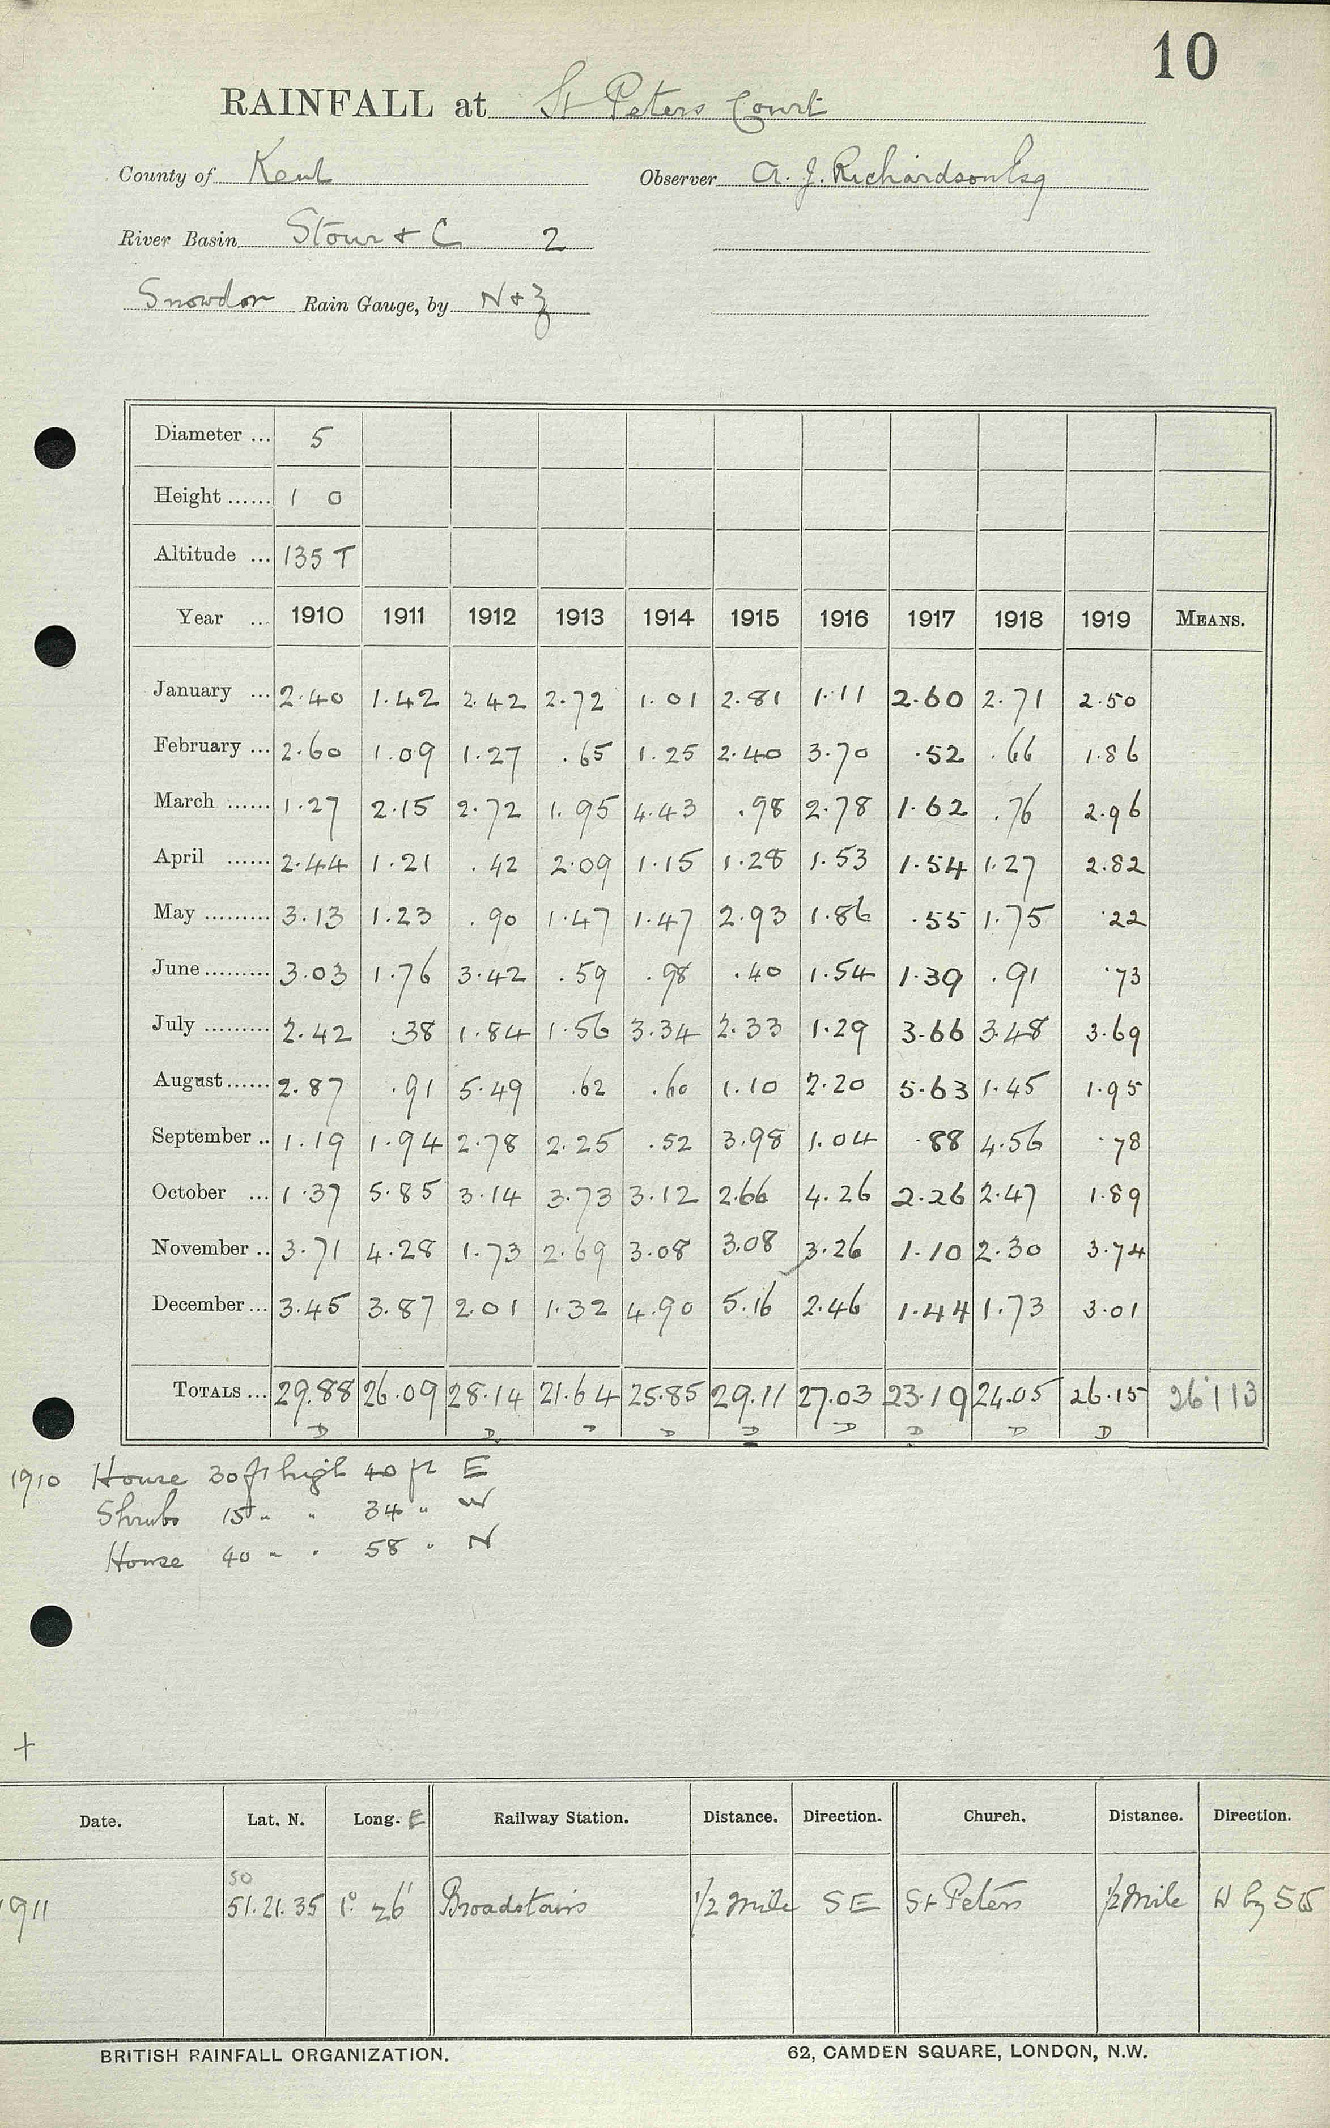 10
RAINFALL at St Peters Court
County of Kent Observer A. J. Richardson Esq
River Basin Stour & C 2
Snowdon Rain Gauge, by N & Z
Diameter ... 5
Height ...... 1 0
Altitude ... 135 T
Year ... 1910 1911 1912 1913 1914 1915 1916 1917 1918 1919 MEANS.
January ... 2.40 1.42 2.42 2.72 1.01 2.81 1.11 2.60 2.71 2.50
February ... 2.60 1.09 1.27 .65 1.25 2.40 3.70 .52 .66 1.86
March ...... 1.27 2.15 2.72 1.95 4.43 .98 2.78 1.62 .76 2.96
April ...... 2.44 1.21 .42 2.09 1.15 1.28 1.53 1.54 1.27 2.82
May ......... 3.13 1.23 .90 1.47 1.47 2.93 1.86 .55 1.75 .22
June ......... 3.03 1.76 3.42 .59 .98 .40 1.54 1.39 .91 .73
July ......... 2.42 .38 1.84 1.56 3.34 2.33 1.29 3.66 3.48 3.69
August ...... 2.87 .91 5.49 .62 .60 1.10 2.20 5.63 1.45 1.95
September .. 1.19 1.94 2.78 2.25 .52 3.98 1.04 .88 4.56 .78
October ... 1.37 5.85 3.14 3.73 3.12 2.66 4.26 2.26 2.47 1.89
November .. 3.71 4.28 1.73 2.69 3.08 3.08 3.26 1.10 2.30 3.74
December ... 3.45 3.87 2.01 1.32 4.90 5.16 2.46 1.44 1.73 3.01
TOTALS ... 29.88 26.09 28.14 21.64 25.85 29.11 27.03 23.19 24.05 26.15 26.113
D D D D D D D D D
1910 House 30 ft high 40 ft E
Shrubs 15 " " 34 " W
House 40 " " 58 " N
+
Date. Lat. N. Long. E Railway Station. Distance. Direction. Church. Distance. Direction.
50
1911 51.21.35 1° 26' Broadstairs 1/2 mile SE St Peters 1/2 mile W by
BRITISH RAINFALL ORGANIZATION. 62, CAMDEN SQUARE, LONDON, N.W.